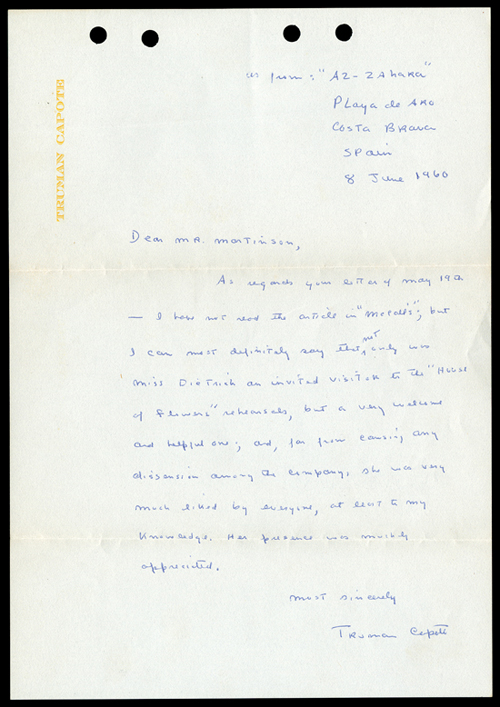 TRUMAN CAPOTE
as from: "AZ-Zahara"
Playa de Aro
Costa Brava
Spain
8 June 1960
Dear Mr. Martinson,
As regards your letter of May 19th
— I have not read the article in "McCall's"; but
I can most definitely say that, not only was
Miss Dietrich an invited visitor to the "House
of Flowers" rehearsals, but a very welcome
and helpful one; and, far from causing any
dissension among the company, she was very
much liked by everyone, at least to my
knowledge. Her presence was mostly
appreciated.
most sincerely
Truman Capote